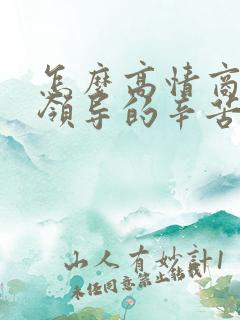 怎麼高情商
領導的辛苦
山人有妙計1
未经同意禁止转载